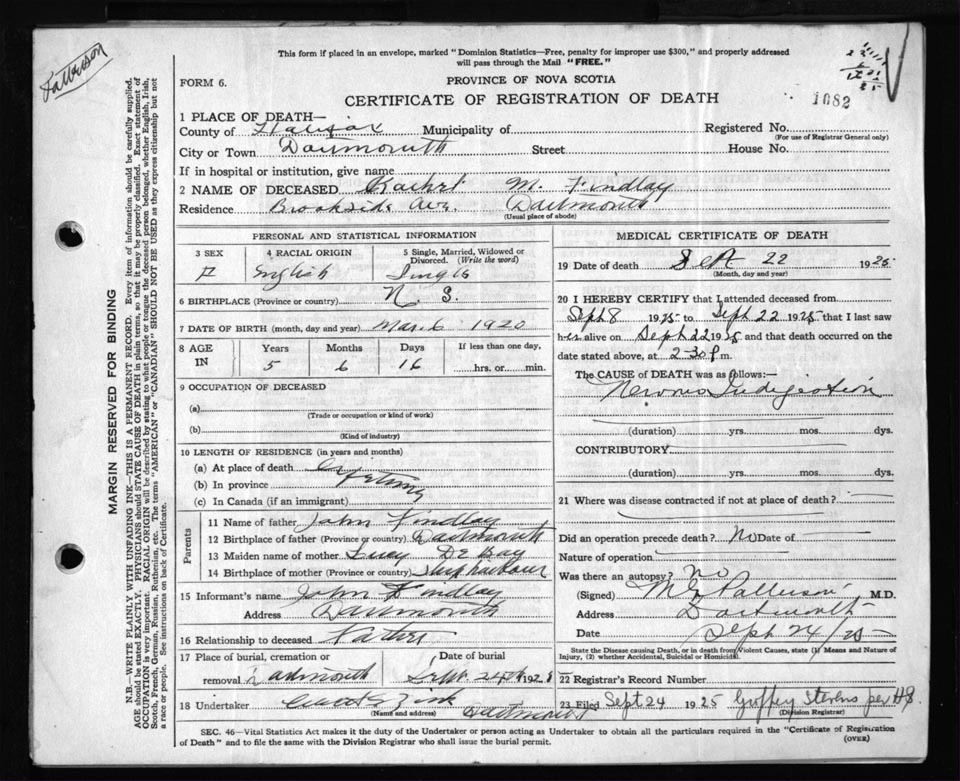 Patterson
This form if placed in an envelope, marked "Dominion Statistics—Free, penalty for improper use $300," and properly addressed
will pass through the Mail "FREE."
FORM 6.
PROVINCE OF NOVA SCOTIA
CERTIFICATE OF REGISTRATION OF DEATH
1082
1 PLACE OF DEATH—
County of Halifax Municipality of Registered No.
(For use of Registrar General only)
City or Town Dartmouth Street House No.
If in hospital or institution, give name
2 NAME OF DECEASED Rachel M. Findlay
Residence Brookside Ave. Dartmouth
(Usual place of abode)
PERSONAL AND STATISTICAL INFORMATION
3 SEX 4 RACIAL ORIGIN 5 Single, Married, Widowed or
Divorced. (Write the word)
F English Single
6 BIRTHPLACE (Province or country) N. S.
7 DATE OF BIRTH (month, day and year) Mar. 6 1920
8 AGE IN Years Months Days If less than one day,
5 6 16 hrs. or min.
9 OCCUPATION OF DECEASED
(a)
(Trade or occupation or kind of work)
(b)
(Kind of industry)
10 LENGTH OF RESIDENCE (in years and months)
(a) At place of death
(b) In province Lifetime
(c) In Canada (if an immigrant)
Parents
11 Name of father John Findlay
12 Birthplace of father (Province or country) Dartmouth
13 Maiden name of mother Lucy DeBay
14 Birthplace of mother (Province or country) Ship harbour
15 Informant's name John Findlay
Address Dartmouth
16 Relationship to deceased Father
17 Place of burial, cremation or Date of burial
removal Dartmouth Sept. 24th 1925
18 Undertaker Zink
(Name and address) Dartmouth
MEDICAL CERTIFICATE OF DEATH
19 Date of death Sept 22 1925
(Month, day and year)
20 I HEREBY CERTIFY that I attended deceased from
Sept 8 1925 to Sept 22 1925 that I last saw
her alive on Sept 22 1925 and that death occurred on the
date stated above, at 2-30 p m.
The CAUSE of DEATH was as follows:—
Indigestion
(duration) yrs. mos. dys.
CONTRIBUTORY
(duration) yrs. mos. dys.
21 Where was disease contracted if not at place of death?
Did an operation precede death? No Date of
Nature of operation
Was there an autopsy? No
(Signed) Patterson M.D.
Address Dartmouth
Date Sept 24/25
State the Disease causing Death, or in death from Violent Causes, state (1) Means and Nature of
Injury, (2) whether Accidental, Suicidal or Homicidal.
22 Registrar's Record Number
23 Filed Sept 24 1925 Stevens per
(Division Registrar)
SEC. 46—Vital Statistics Act makes it the duty of the Undertaker or person acting as Undertaker to obtain all the particulars required in the "Certificate of Registration
of Death" and to file the same with the Division Registrar who shall issue the burial permit.
(OVER)
MARGIN RESERVED FOR BINDING
N.B.—WRITE PLAINLY WITH UNFADING INK—THIS IS A PERMANENT RECORD. Every item of information should be carefully supplied.
AGE should be stated EXACTLY. PHYSICIANS should STATE CAUSE OF DEATH in plain terms, so that it may be properly classified. Exact statement of
OCCUPATION is very important. RACIAL ORIGIN will be described by stating to what people or tongue the deceased person belonged, whether English, Irish,
Scotch, French, German, Russian, Ruthenian, etc. The terms "AMERICAN" or "CANADIAN" SHOULD NOT BE USED as they express citizenship but not
a race or people. See instructions on back of Certificate.